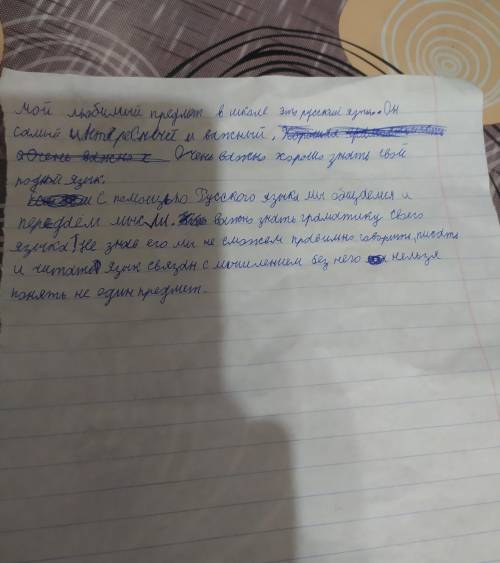 Мой любимый предмет в школе это русский язык. Он
самый интересный и важный.
Очень важно хорошо знать свой
родной язык.
С помощью Русского языка мы общаемся и
передаем мысли. важно знать граматику своего
языка! Не зная его мы не сможем правильно говорить, писать
и читать! язык связан с мышлением без него нельзя
понять не один предмет.